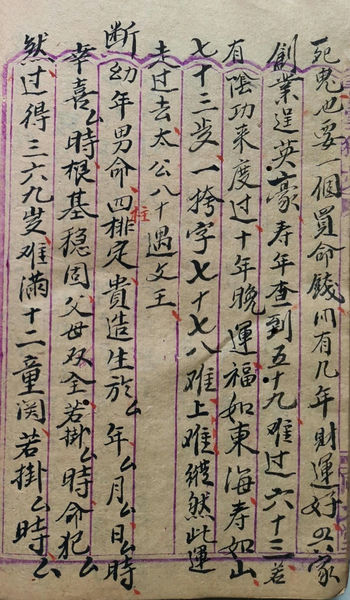 死鬼也要一個買命錢川有几年財運好
創業逞英豪寿年查到五十九难过六十三若
有陰功来度过十年晚運福如東海寿如山
七十三步一挎字七十七八难上难縱然此運
走过去太公八十遇文王
断幼年男命四柱排定貴造生於厶年厶月厶日厶時
幸喜厶時根基穏固父母双全若掛厶時命犯厶
然过得三六九岁难满十二童関若掛厶時厶